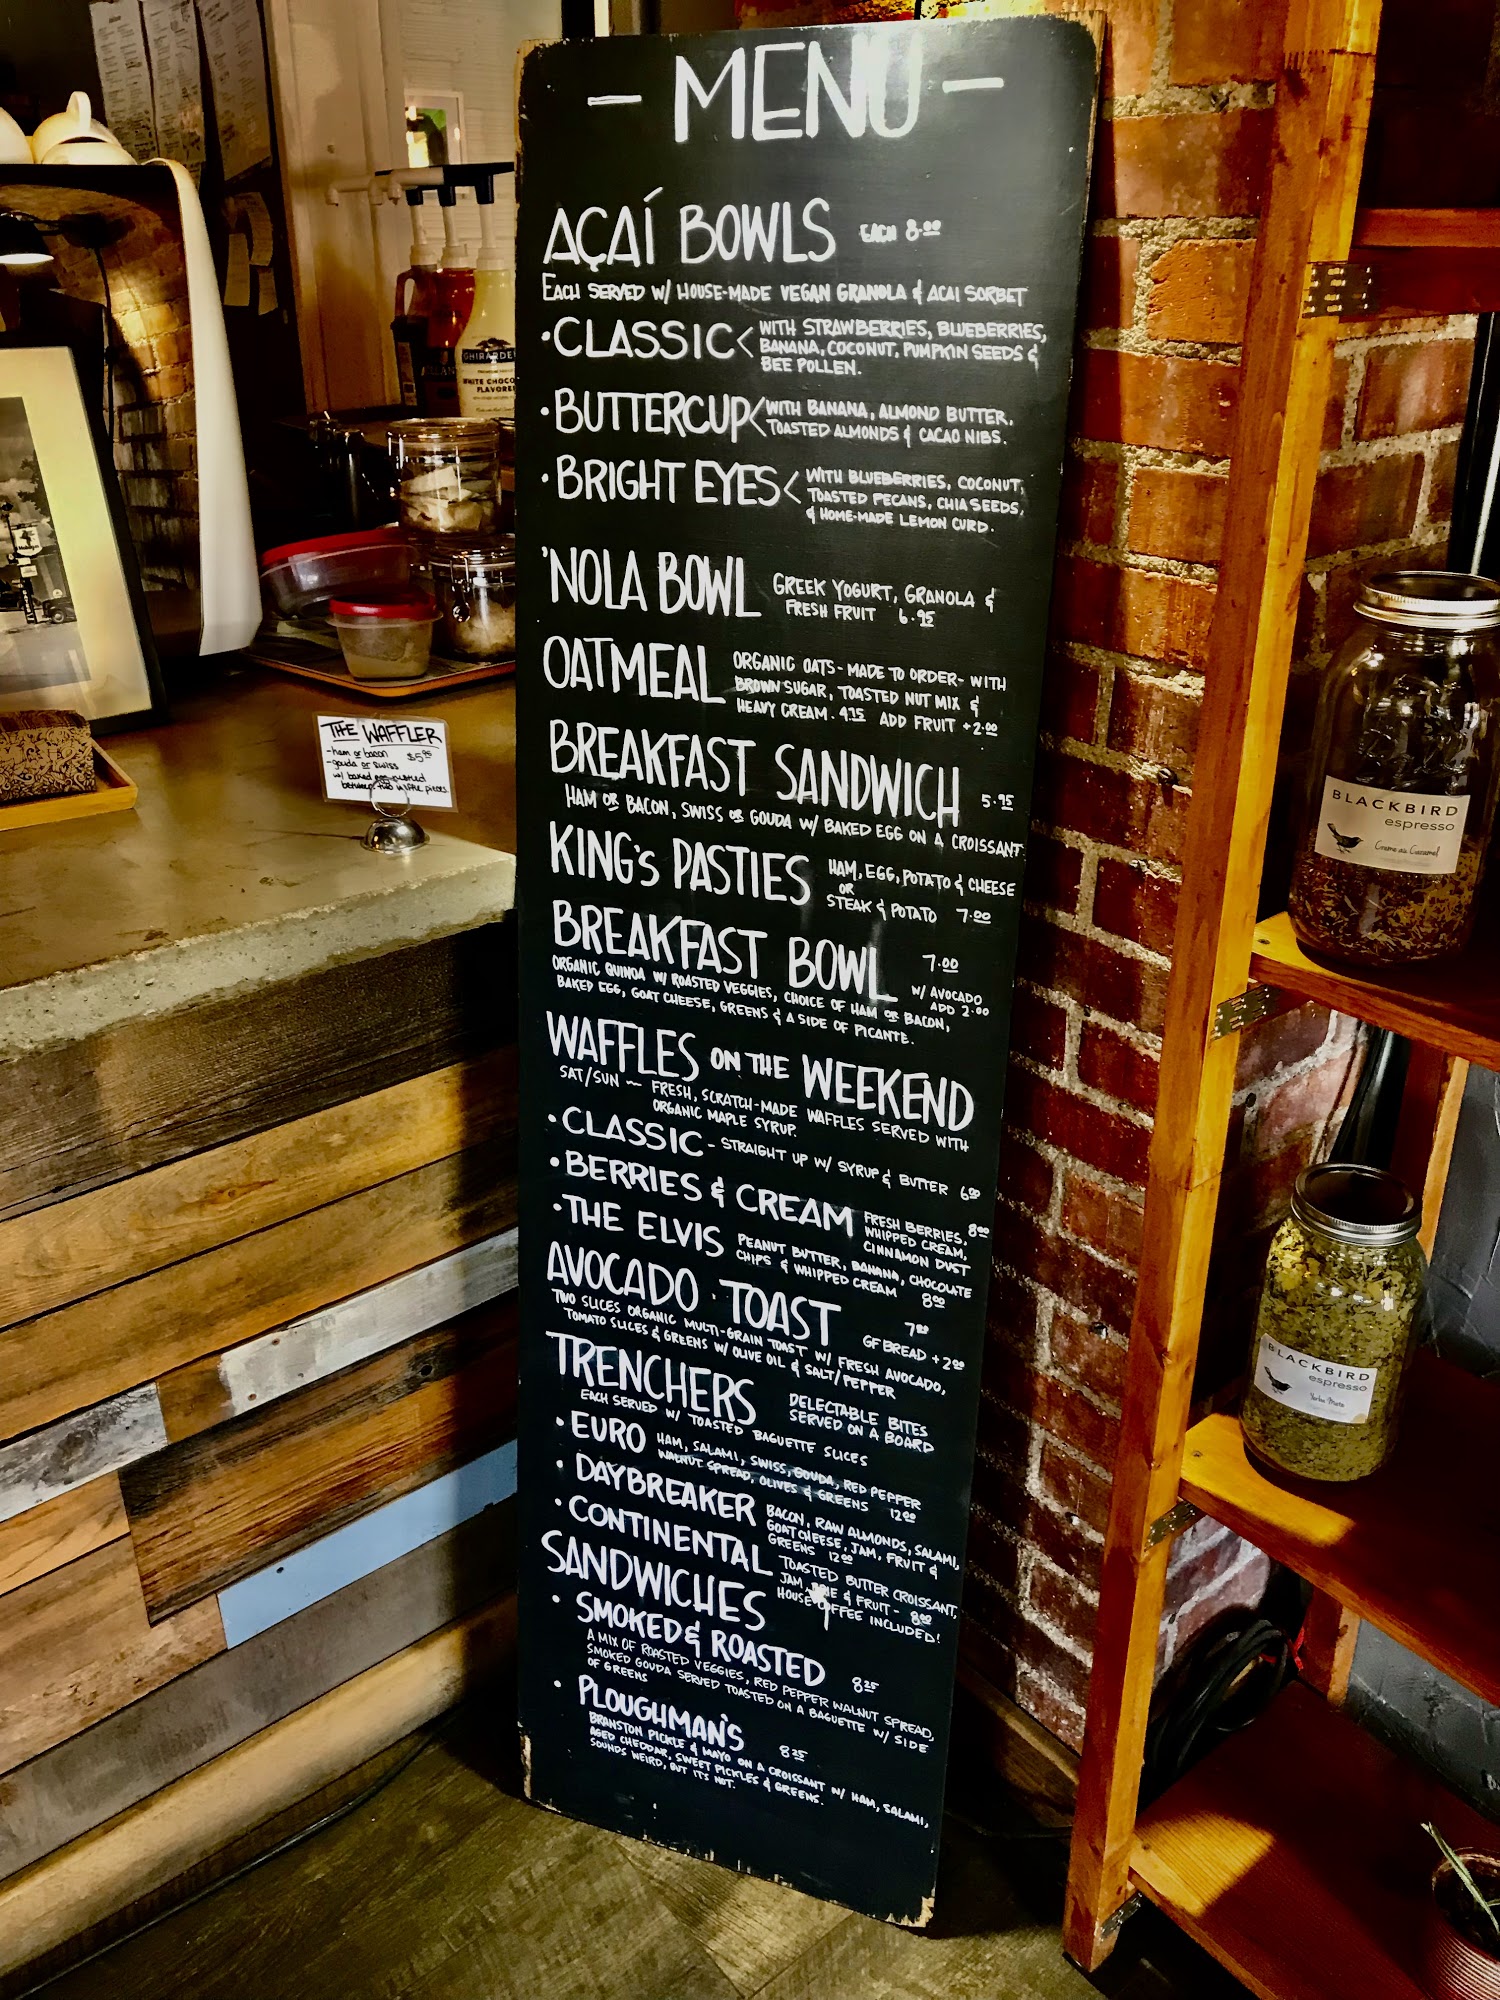 - MENU -
AÇAÍ BOWLS EACH 8.00
EACH SERVED W/ HOUSE-MADE VEGAN GRANOLA & ACAI SORBET
• CLASSIC < WITH STRAWBERRIES, BLUEBERRIES,
BANANA, COCONUT, PUMPKIN SEEDS &
BEE POLLEN.
• BUTTERCUP < WITH BANANA, ALMOND BUTTER,
TOASTED ALMONDS & CACAO NIBS.
• BRIGHT EYES < WITH BLUEBERRIES, COCONUT,
TOASTED PECANS, CHIA SEEDS,
& HOME-MADE LEMON CURD.
'NOLA BOWL GREEK YOGURT, GRANOLA &
FRESH FRUIT 6.95
OATMEAL ORGANIC OATS - MADE TO ORDER - WITH
BROWN SUGAR, TOASTED NUT MIX &
HEAVY CREAM. 4.75 ADD FRUIT +2.00
BREAKFAST SANDWICH 5.95
HAM OR BACON, SWISS OR GOUDA W/ BAKED EGG ON A CROISSANT
KING'S PASTIES HAM, EGG, POTATO & CHEESE
OR
STEAK & POTATO 7.00
BREAKFAST BOWL 7.00
W/ AVOCADO
ADD 2.00
ORGANIC QUINOA W/ ROASTED VEGGIES, CHOICE OF HAM OR BACON,
BAKED EGG, GOAT CHEESE, GREENS & A SIDE OF PICANTE.
WAFFLES ON THE WEEKEND
SAT/SUN ~ FRESH, SCRATCH-MADE WAFFLES SERVED WITH
ORGANIC MAPLE SYRUP.
• CLASSIC - STRAIGHT UP W/ SYRUP & BUTTER 6.00
• BERRIES & CREAM FRESH BERRIES, 8.00
WHIPPED CREAM,
CINNAMON DUST
• THE ELVIS PEANUT BUTTER, BANANA, CHOCOLATE
CHIPS & WHIPPED CREAM 8.00
AVOCADO TOAST 7.00
GF BREAD +2.00
TWO SLICES ORGANIC MULTI-GRAIN TOAST W/ FRESH AVOCADO,
TOMATO SLICES & GREENS W/ OLIVE OIL & SALT/PEPPER
TRENCHERS DELECTABLE BITES
SERVED ON A BOARD
EACH SERVED W/ TOASTED BAGUETTE SLICES
• EURO HAM, SALAMI, SWISS, GOUDA, RED PEPPER
WALNUT SPREAD, OLIVES & GREENS 12.00
• DAYBREAKER BACON, RAW ALMONDS, SALAMI,
GOAT CHEESE, JAM, FRUIT &
GREENS 12.00
• CONTINENTAL TOASTED BUTTER CROISSANT,
JAM, & FRUIT - 8.00
HOUSE COFFEE INCLUDED!
SANDWICHES
• SMOKED & ROASTED 8.25
A MIX OF ROASTED VEGGIES, RED PEPPER WALNUT SPREAD,
SMOKED GOUDA SERVED TOASTED ON A BAGUETTE W/ SIDE
OF GREENS
• PLOUGHMAN'S 8.25
BRANSTON PICKLE & MAYO ON A CROISSANT W/ HAM, SALAMI,
AGED CHEDDAR, SWEET PICKLES & GREENS.
SOUNDS WEIRD, BUT IT'S NOT.
THE WAFFLER
-ham or bacon $5.95
-gouda or swiss
w/ baked egg
between two waffle pieces
GHIRARDE
WHITE CHOCO
FLAVORE
BLACKBIRD
espresso
Creme au Caramel
BLACKBIRD
espresso
Yerba Mate